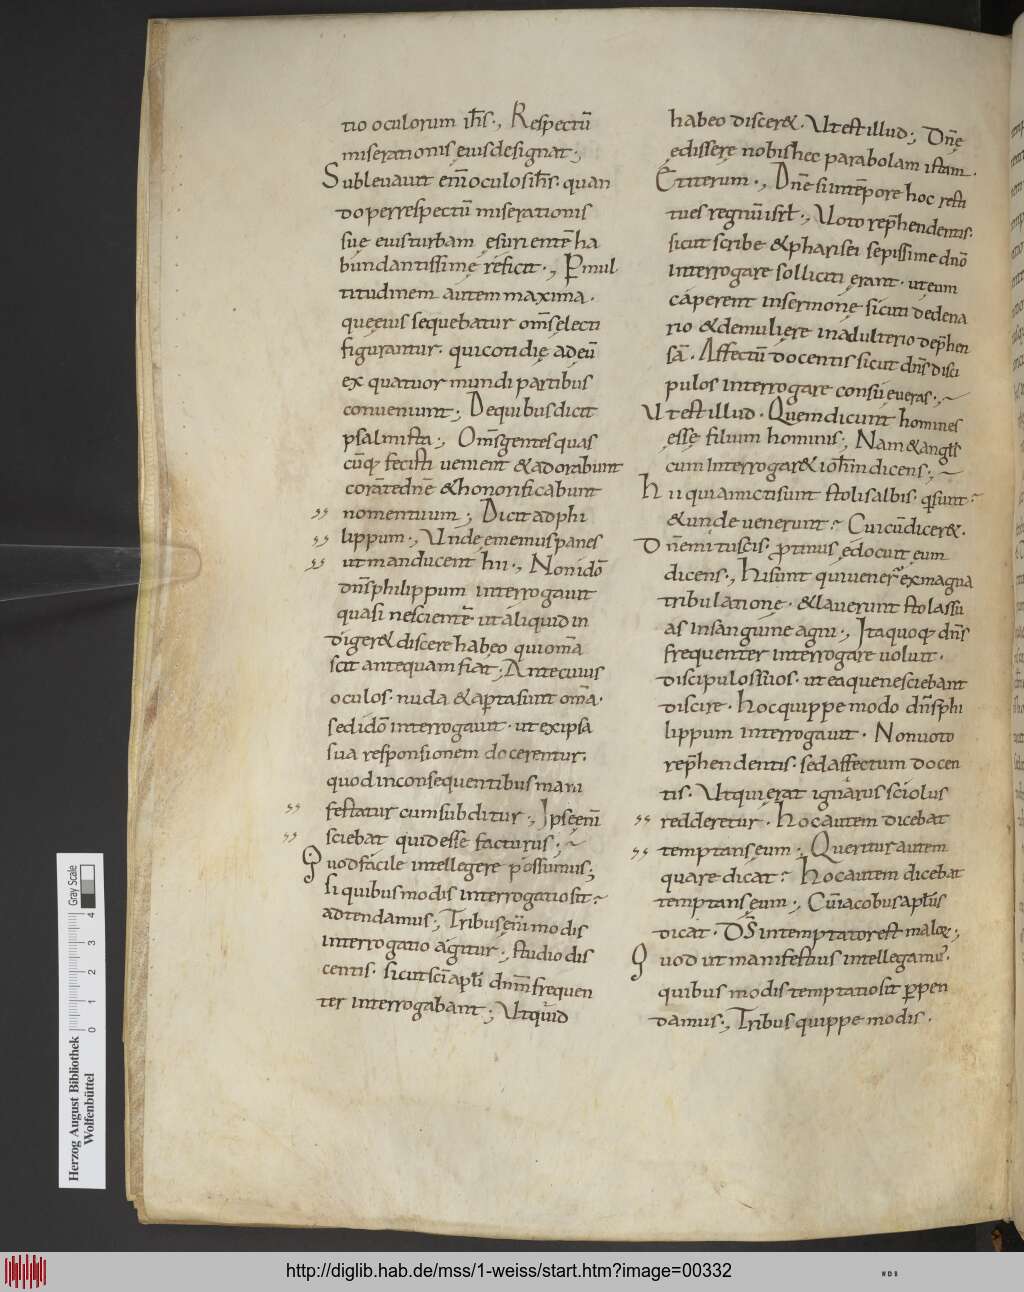 tio oculorum ih̄s·, Respectū
miserationis eius designat·,
Subleuauit eni̅ oculos ih̄s· quan
do per respectū miserationis
suę eius turbam ęsurientē ha
bundantissime reficit·, P̱ mul
titudinem autem maxima·
que eius sequebatur om̄s electi
figurantur· qui cotidię ad eū
ex quatuor mundi partibus
conueniunt; De quibus dicit
psalmista·, Om̄s gentes quas
cūq; fecisti uenient & adorabunt
corā te dn̄e & honorificabunt
nomen tuum; Dicit ad phi
lippum·, Unde ememus panes
ut manducent hii·, Non idō
dn̄s philippum interrogauit
quasi nescientē ut aliquid in
diger& discere habeo qui om̄a
scit antequam fiat; Ante cuius
oculos· nuda & aperta sunt om̄a·
sed idō interrogauit· ut ex ipsa
sua responsionem docerentur·
quod in consequentibus mani
festatur cum subditur·, Ipse eni̅
sciebat quid esse facturus;
Quod facile intellegere possumus;
si quibus modis interrogatio sit
adtendamus·, Tribus eni̅ modis
interrogatio agitur·, studio dis
centis· sicut sc̄i apl̄i dn̄m frequen
ter interrogabant·, Ut quid
habeo discere&· Ut est illud; Dn̄ę
edissere nobis hec parabolam istam·
Et iterum·, Dn̄e si in tēpore hoc resti
tues regnū isrl̄·, Uoto rep̄hendentis·
sicut scribe & pharisei sepissime dn̄o
interrogare solliciti erant· ut eum
caperent in sermone sicuti de dena
rio & de muliere in adulterio dep̄hen
sā· Affectū docentis sicut dn̄s disci
pulos interrogare consueueras·,
Ut est illud· Quem dicunt homines
essę filium hominis·, Nam & angl̄s
cum interrogar& ioh̄m dicens·,
Hii qui amicti sunt stolis albis· q̱ sunt
& unde uenerunt? Cui cū dicer&·
Dn̄e mi tu scis· protinus edocuit eum
dicens·, Hi sunt qui uener̄ ex magna
tribulatione· & lauerunt stolas su
as in sanguine agni·, Itaquoq; dn̄s
frequenter interrogare uoluit·
discipulos suos· ut ea que nesciebant
discire· Hoc quippe modo dn̄s phi
lippum interrogauit· Non uoto
rep̄hendentis· sed affectum docen
tis· Ut qui erat ignarus sciolus
redderetur· Hoc autem dicebat
temptans eum·, Queritur autem
quare dicat? Hoc autem dicebat
temptans eum·, Cū iacobus aptl̄s
dicat· D̄S intemptator est malor̄·,
Quod ut manifestius intellegamus·
quibus modis temptatio sit p̱pen
damus·, Tribus quippe modis·
Gray Scale
0 1 2 3 4
Herzog August Bibliothek
Wolfenbüttel
http://diglib.hab.de/mss/1-weiss/start.htm?image=00332